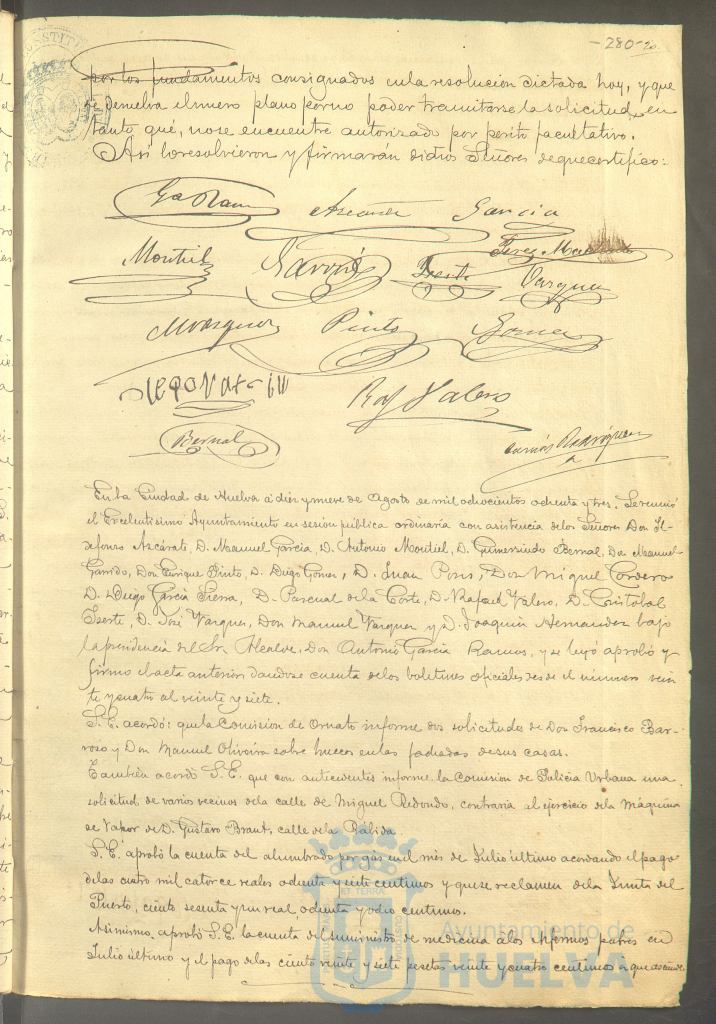 -280-
por los fundamentos consignados en la resolucion dictada hoy, y que
se devuelva el mero plano por no poder tramitarse la solicitud, en
tanto qué, no se encuentre autorizado por perito facultativo.
Asi lo resolvieron y firmarán dichos Señores de que certifico:
Ga Ramos Azcárate Garcia
Montiel Garrido Iserte Perez Machado
Vazquez
M Vazquez Pinto Gomez
Raf Valero
Bernal
Rodriguez
En la Ciudad de Huelva á diez y nueve de Agosto de mil ochocientos ochenta y tres. Se reunió
el Excelentisimo Ayuntamiento en sesion pública ordinaria con asistencia de los Señores Don Il-
defonso Azcárate, D. Manuel Garcia, D. Antonio Montiel, D. Gumersindo Bernal, Don Manuel
Garrido, Don Enrique Pinto, D. Diego Gomez, D. Juan Pons, Don Miguel Cordero
D. Diego Garcia Sierra, D. Pascual de la Corte, D. Rafael Valero, D. Cristobal
Iserte, D. José Vazquez, Don Manuel Vazquez y D. Joaquin Hernandez bajo
la presidencia del Sr. Alcalde, Don Antonio Garcia Ramos, y se leyó aprobó y
firmó el acta anterior dandose cuenta de los boletines oficiales desde el número vein
te y cuatro al veinte y siete.
S. E. acordó: que la Comision de Ornato informe dos solicitudes de Don Francisco Bar-
roso y Don Manuel Oliveira sobre huecos en las fachadas de sus casas.
Tambien acordó S. E. que con antecedentes informe la Comision de Policia Urbana una
solicitud de varios vecinos de la calle de Miguel Redondo, contraria al ejercicio de la Máquina
de Vapor de D. Gustavo Brant, calle de la Rábida.
S. E. aprobó la cuenta del alumbrado por gas en el mes de Julio último acordando el pago
de las cuatro mil catorce reales ochenta y siete centimos y que se reclamen de la Junta del
Puerto, ciento sesenta y un real ochenta y ocho centimos.
Asimismo aprobó S. E. la cuenta del suministro de medicina a los enfermos pobres en
Julio último y el pago de las ciento veinte y siete pesetas veinte y cuatro centimos a que asciende.
Ayuntamiento de
HUELVA